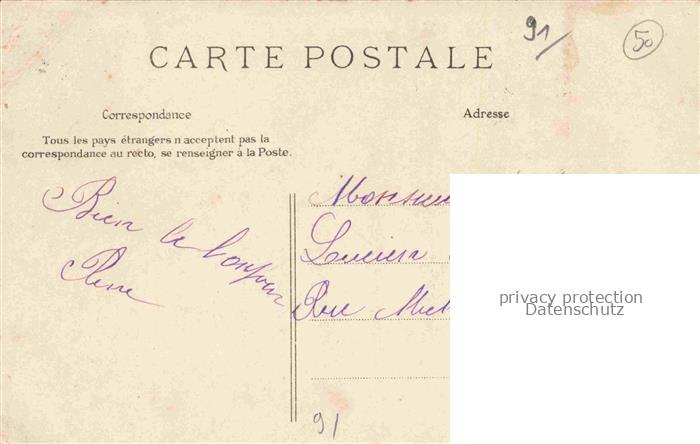 91/
50
CARTE POSTALE
Correspondance
Adresse
Tous les pays étrangers n acceptent pas la
correspondance au recto, se renseigner à la Poste.
Bien le bonjour
Monsieur
Lucien
Rue
privacy protection
Datenschutz
91